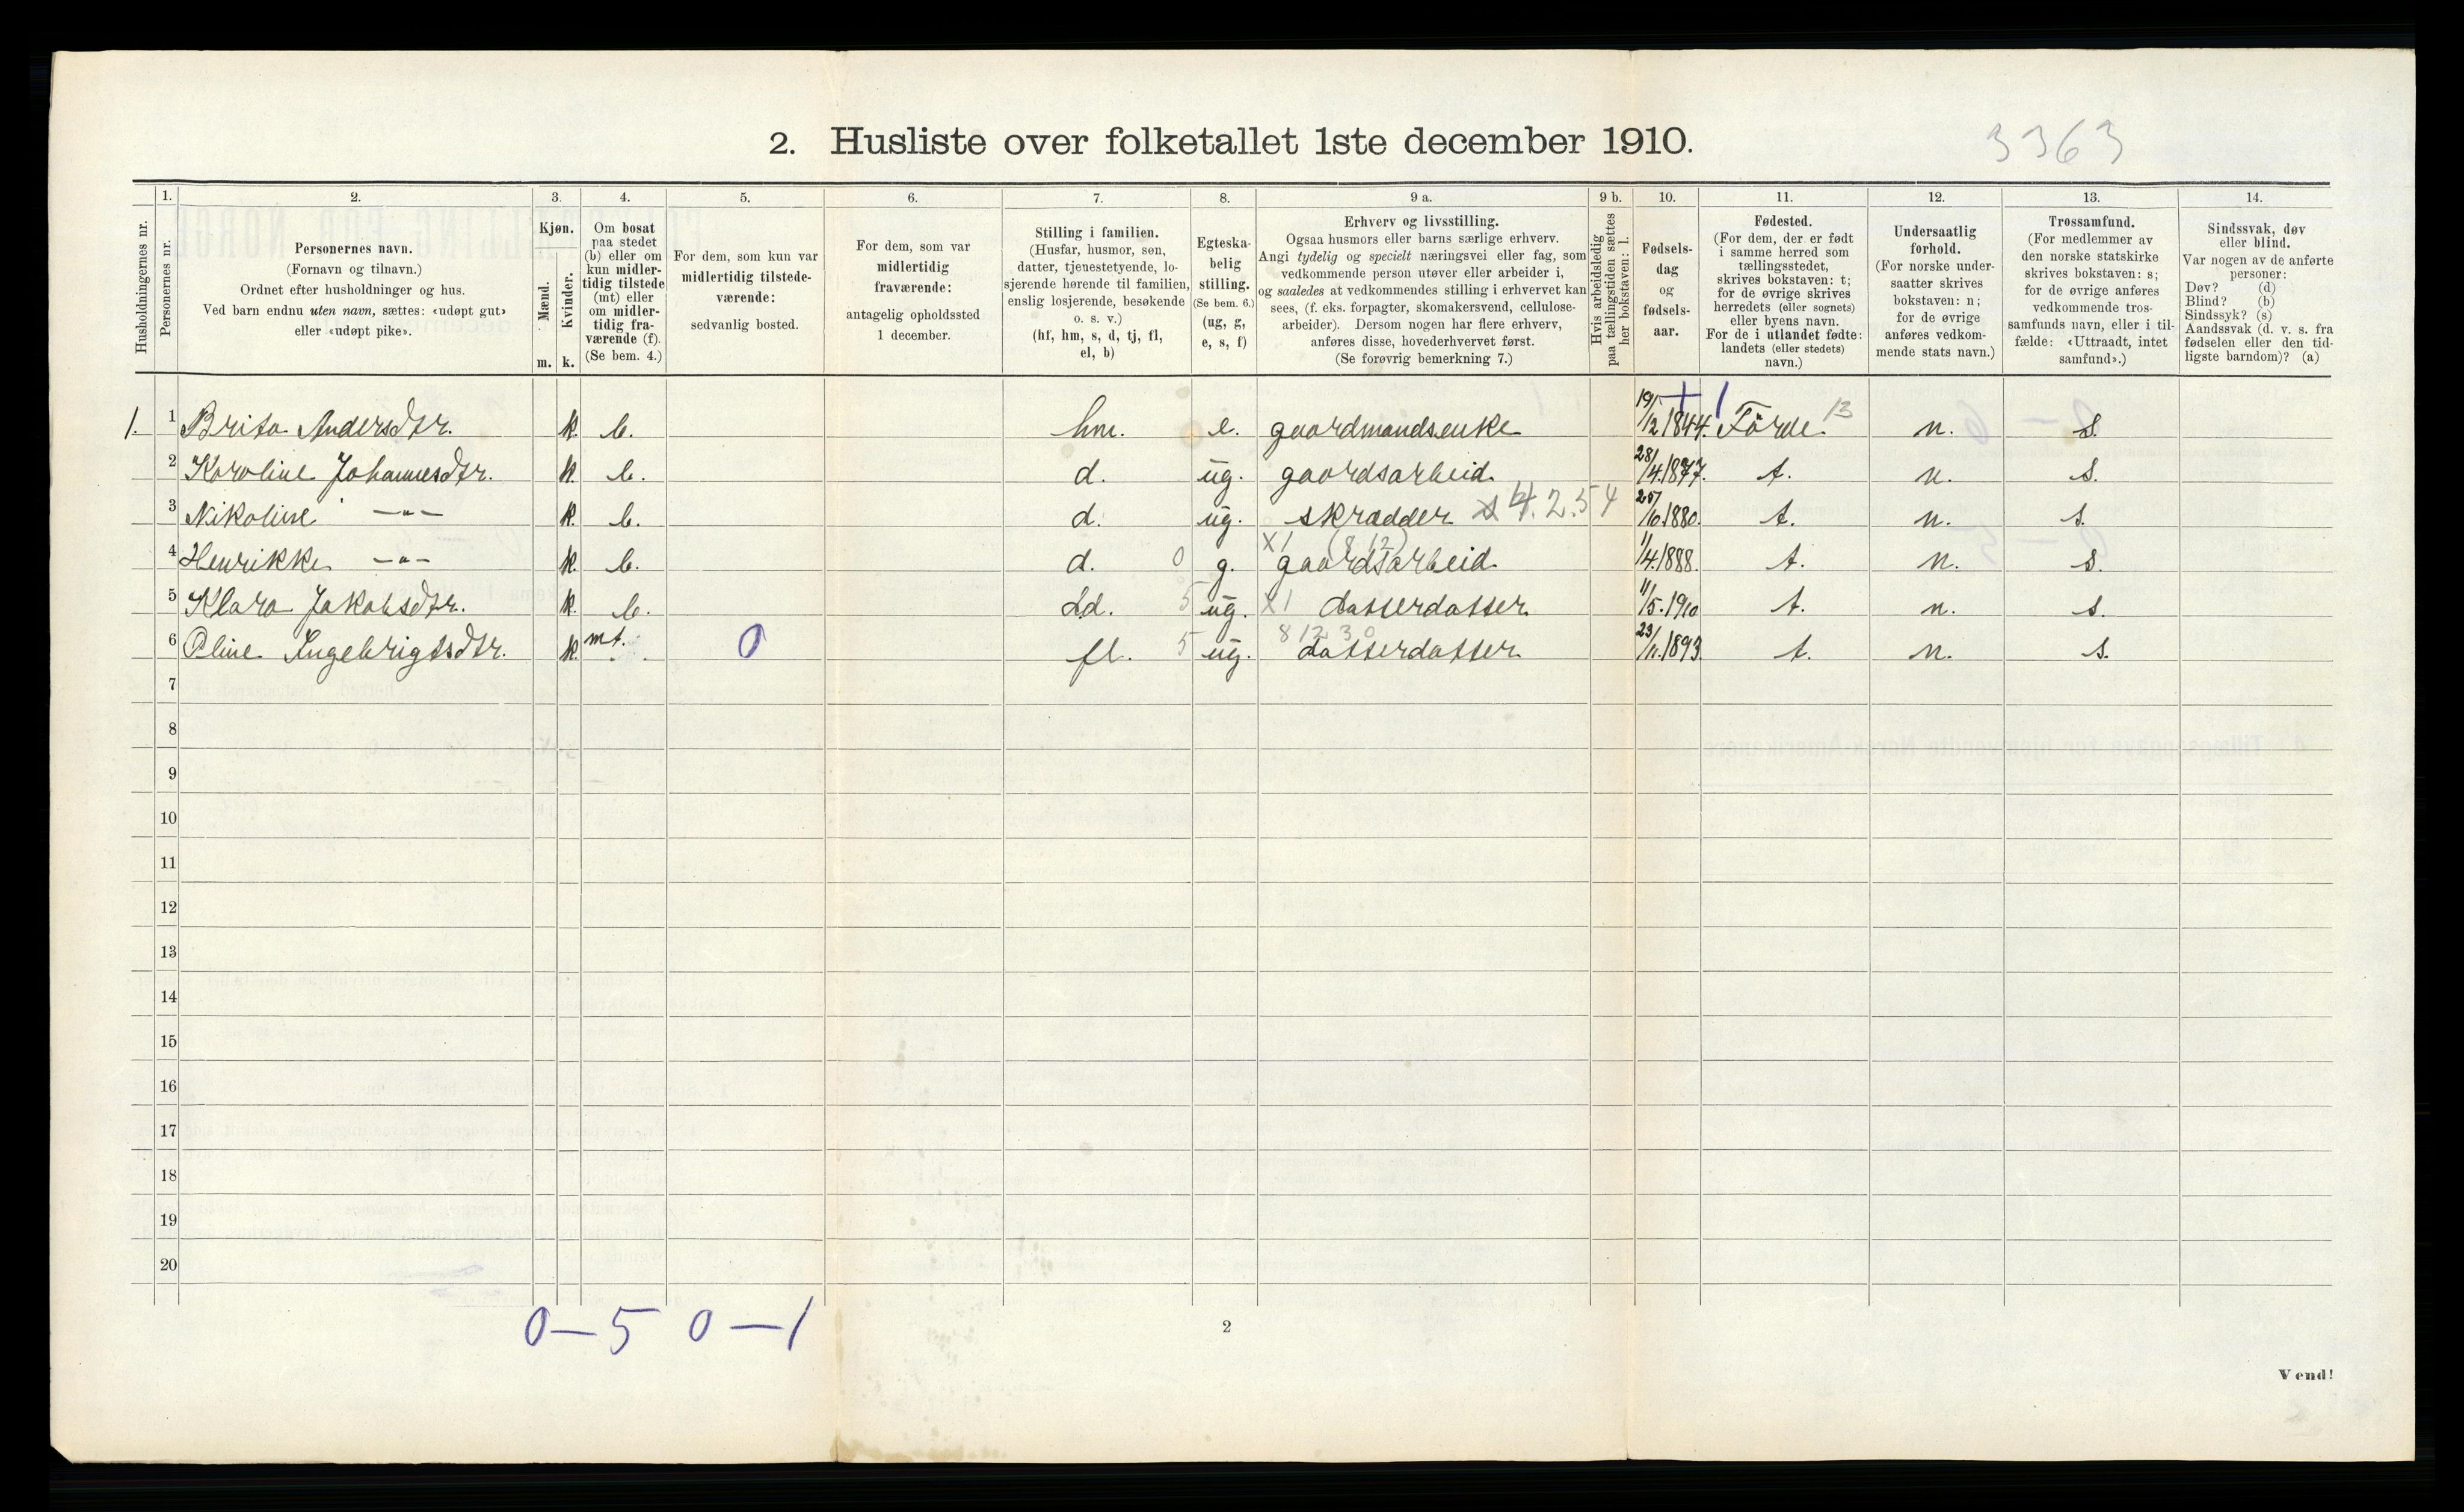 2. Husliste over folketallet 1ste december 1910.
3363
Husholdningernes nr.
1.
Personernes nr.
2.
Personernes navn.
(Fornavn og tilnavn.)
Ordnet efter husholdninger og hus.
Ved barn endnu uten navn, sættes: «udøpt gut»
eller «udøpt pike».
3.
Kjøn.
Mænd.
Kvinder.
m. k.
4.
Om bosat
paa stedet
(b) eller om
kun midler-
tidig tilstede
(mt) eller
om midler-
tidig fra-
værende (f).
(Se bem. 4.)
5.
For dem, som kun var
midlertidig tilstede-
værende:
sedvanlig bosted.
6.
For dem, som var
midlertidig
fraværende:
antagelig opholdssted
1 december.
7.
Stilling i familien.
(Husfar, husmor, søn,
datter, tjenestetyende, lo-
sjerende hørende til familien,
enslig losjerende, besøkende
o. s. v.)
(hf, hm, s, d, tj, fl,
el, b)
8.
Egteska-
belig
stilling.
(Se bem. 6.)
(ug, g,
e, s, f)
9 a.
Erhverv og livsstilling.
Ogsaa husmors eller barns særlige erhverv.
Angi tydelig og specielt næringsvei eller fag, som
vedkommende person utøver eller arbeider i,
og saaledes at vedkommendes stilling i erhvervet kan
sees, (f. eks. forpagter, skomakersvend, cellulose-
arbeider). Dersom nogen har flere erhverv,
anføres disse, hovederhvervet først.
(Se forøvrig bemerkning 7.)
9 b.
Hvis arbeidsledig
paa tællingstiden sættes
her bokstaven: l.
10.
Fødsels-
dag
og
fødsels-
aar.
11.
Fødested.
(For dem, der er født
i samme herred som
tællingsstedet,
skrives bokstaven: t;
for de øvrige skrives
herredets (eller sognets)
eller byens navn.
For de i utlandet fødte:
landets (eller stedets)
navn.)
12.
Undersaatlig
forhold.
(For norske under-
saatter skrives
bokstaven: n;
for de øvrige
anføres vedkom-
mende stats navn.)
13.
Trossamfund.
(For medlemmer av
den norske statskirke
skrives bokstaven: s;
for de øvrige anføres
vedkommende tros-
samfunds navn, eller i til-
fælde: «Uttraadt, intet
samfund».)
14.
Sindssvak, døv
eller blind.
Var nogen av de anførte
personer:
Døv? (d)
Blind? (b)
Sindssyk? (s)
Aandssvak (d. v. s. fra
fødselen eller den tid-
ligste barndom)? (a)
1. 1 Brita Andersdtr. k. b. hm. e. gaardmandsenke 19/12 1844. Förde 13 n. s.
2 Karoline Johannesdtr. k. b. d. ug. gaardsarbeid. 28/4.1877. t. n. s.
3 Nikoline —"— k. b. d. ug. skrædder 4.2.54 25/10.1880. t. n. s.
X1 (8 12)
4 Henrikke —"— k. b. d. 0 g. gaardsarbeid. 1/4.1888. t. n. s.
5 Klara Jakobsdtr. k. b. dd. 5 ug. X1 datterdatter 11/5.1910 t. n. s.
8 12 30
6 Oline Ingebrigtsdtr. k. mt. 0 fl. 5 ug. datterdatter 23/11.1893. t. n. s.
7
8
9
10
11
12
13
14
15
16
17
18
19
20
0—5 0—1
2
Vend!